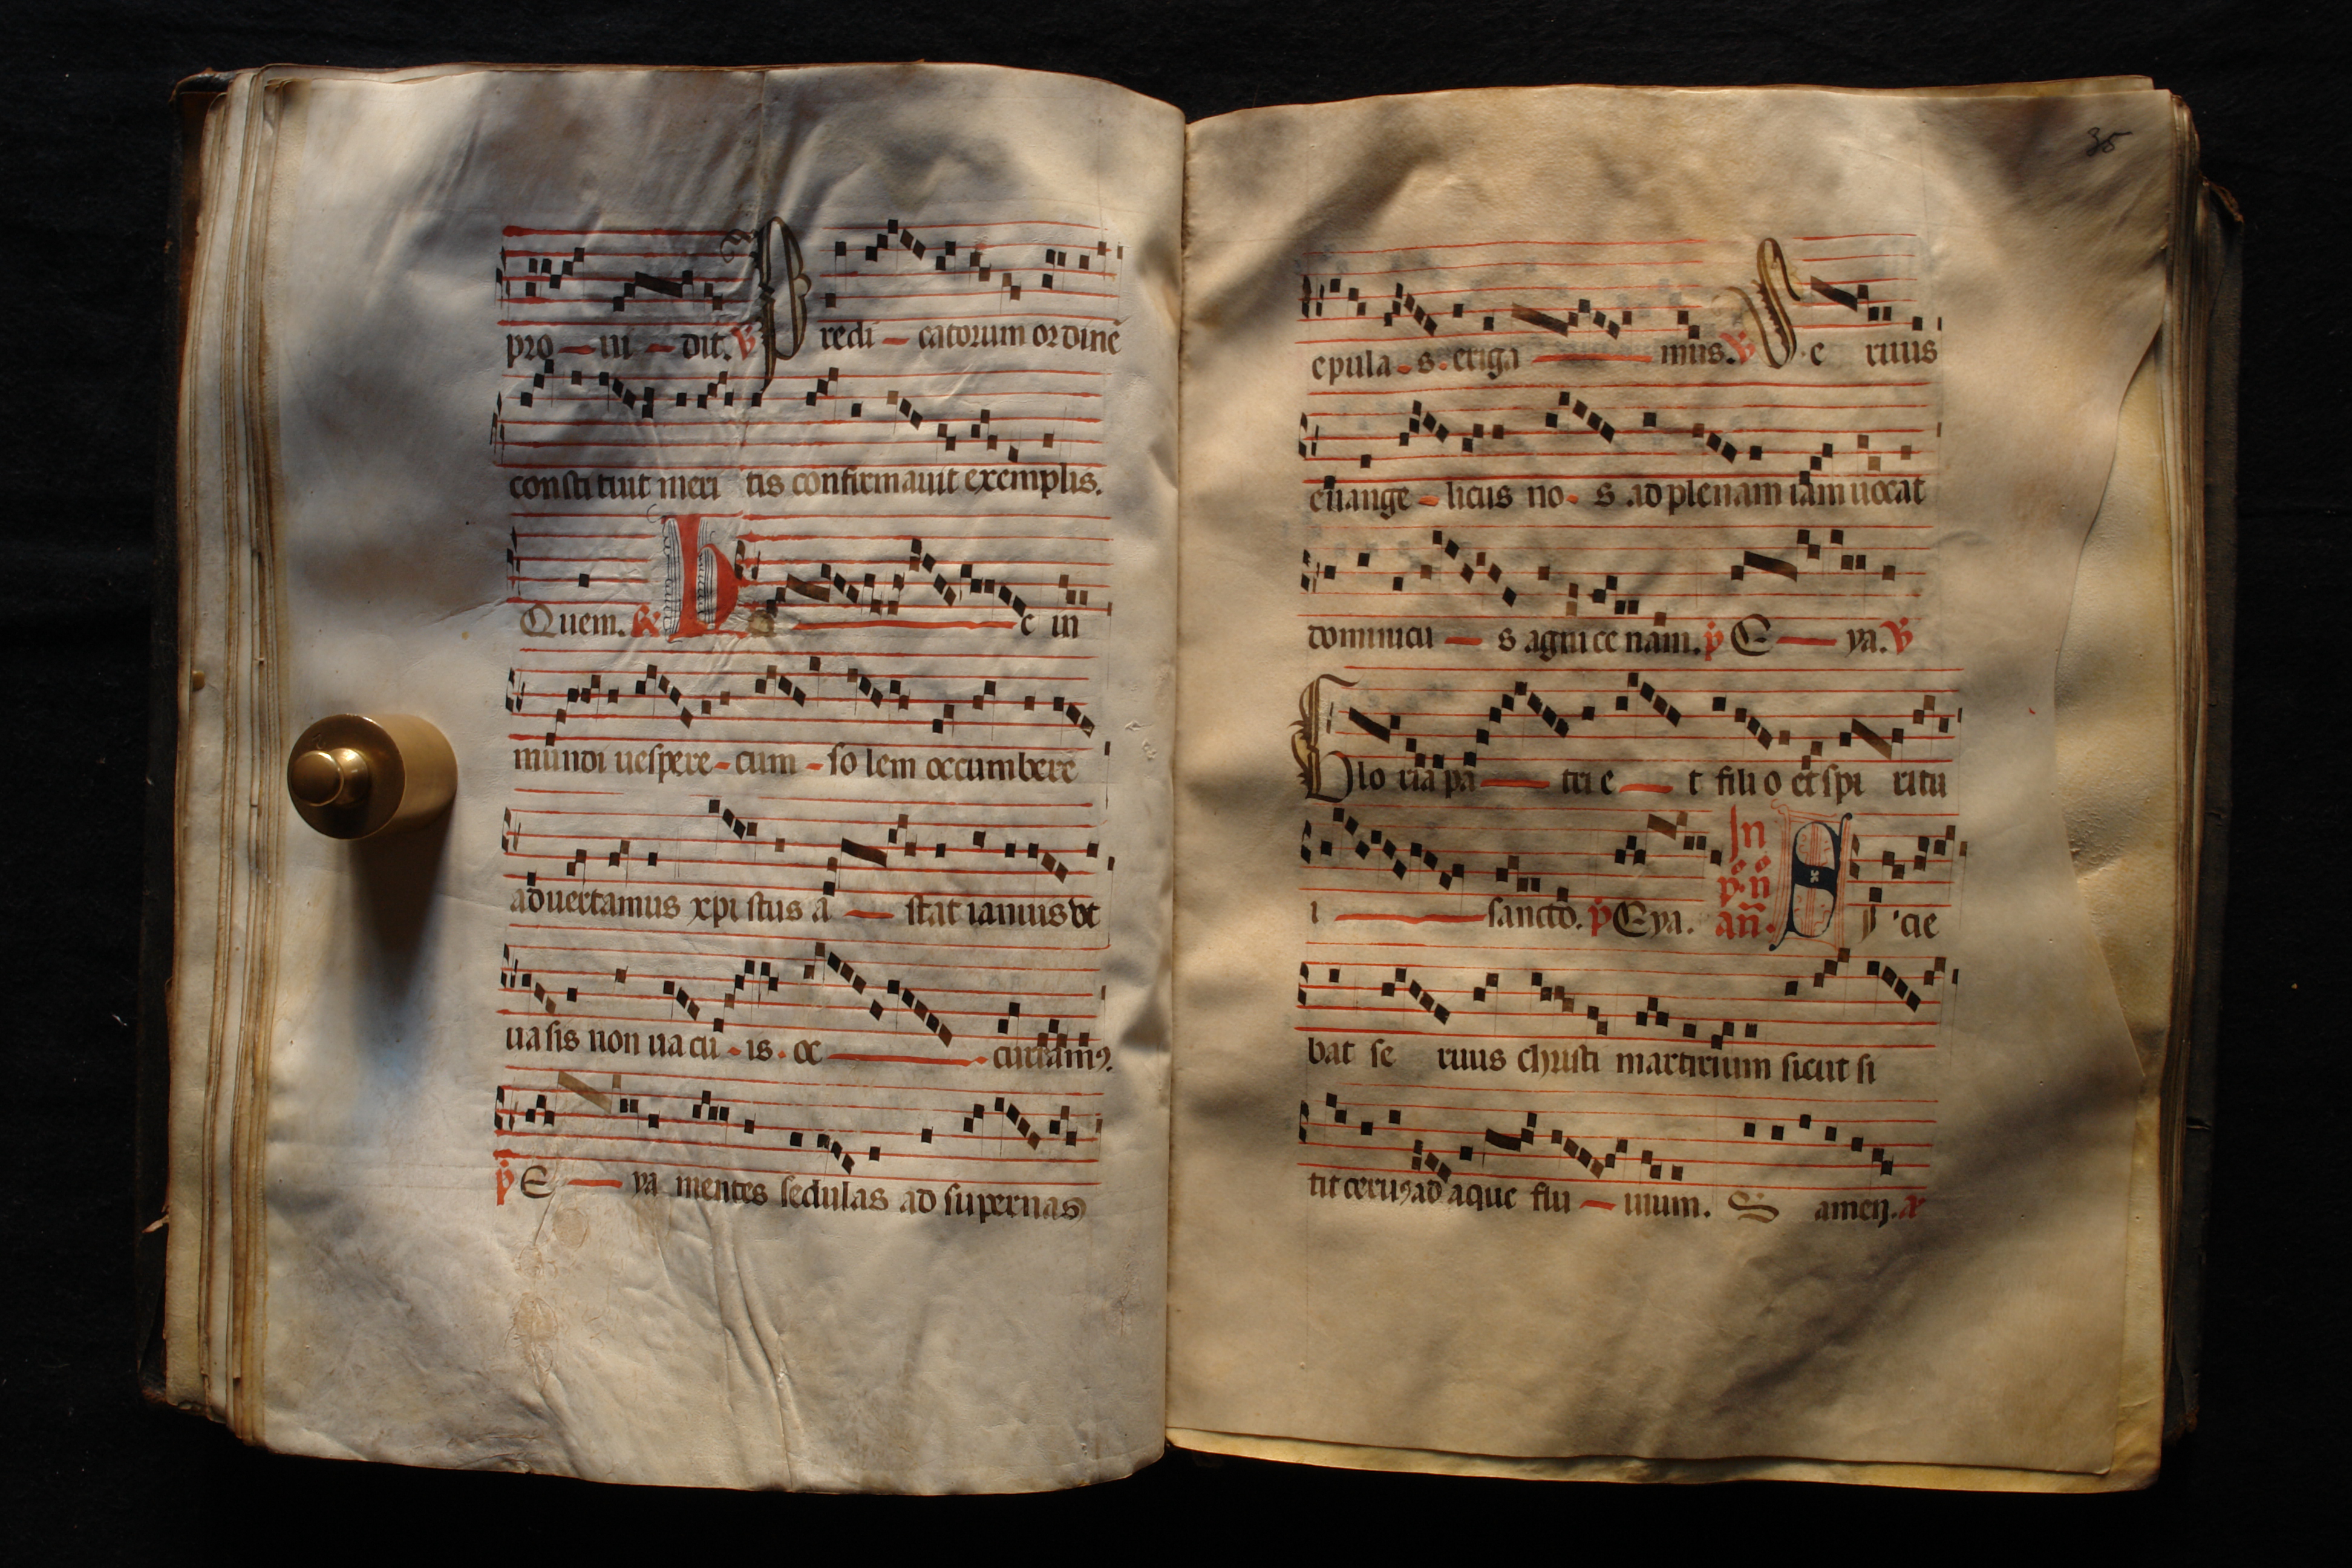 pro - ui - dit. ℣ Predi - catorum ordinē
constituit meri tis confirmauit exemplis.
Quem. ℟ hec in
mundi uespere - cum - so lem occumbere
aduertamus xpistus a - stat iamiusvt
uasis non uacu - is . oc - curramꝰ.
p̄ E - ya mentes sedulas ad supernas
35
epula - s. eriga - mus. ℣ Se ruus
euange - licus no - s ad plenam iam uocat
dominicu - s agni ce nam. p̄ E - ya. ℣
Glo ria pa - tri e - t fili o et spi ritu
i - sancto. p̄ Eya. In p°. n° an̄. Sicie
bat se ruus christi martirium sicut si
tit ceruꝰ ad aque flu - uium. S amen.